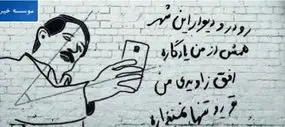 موسسه خبر
رو در و دیوار این شهر
همش از من یادگاره
افق زاویه ی من
تو رو تنها نمیذاره